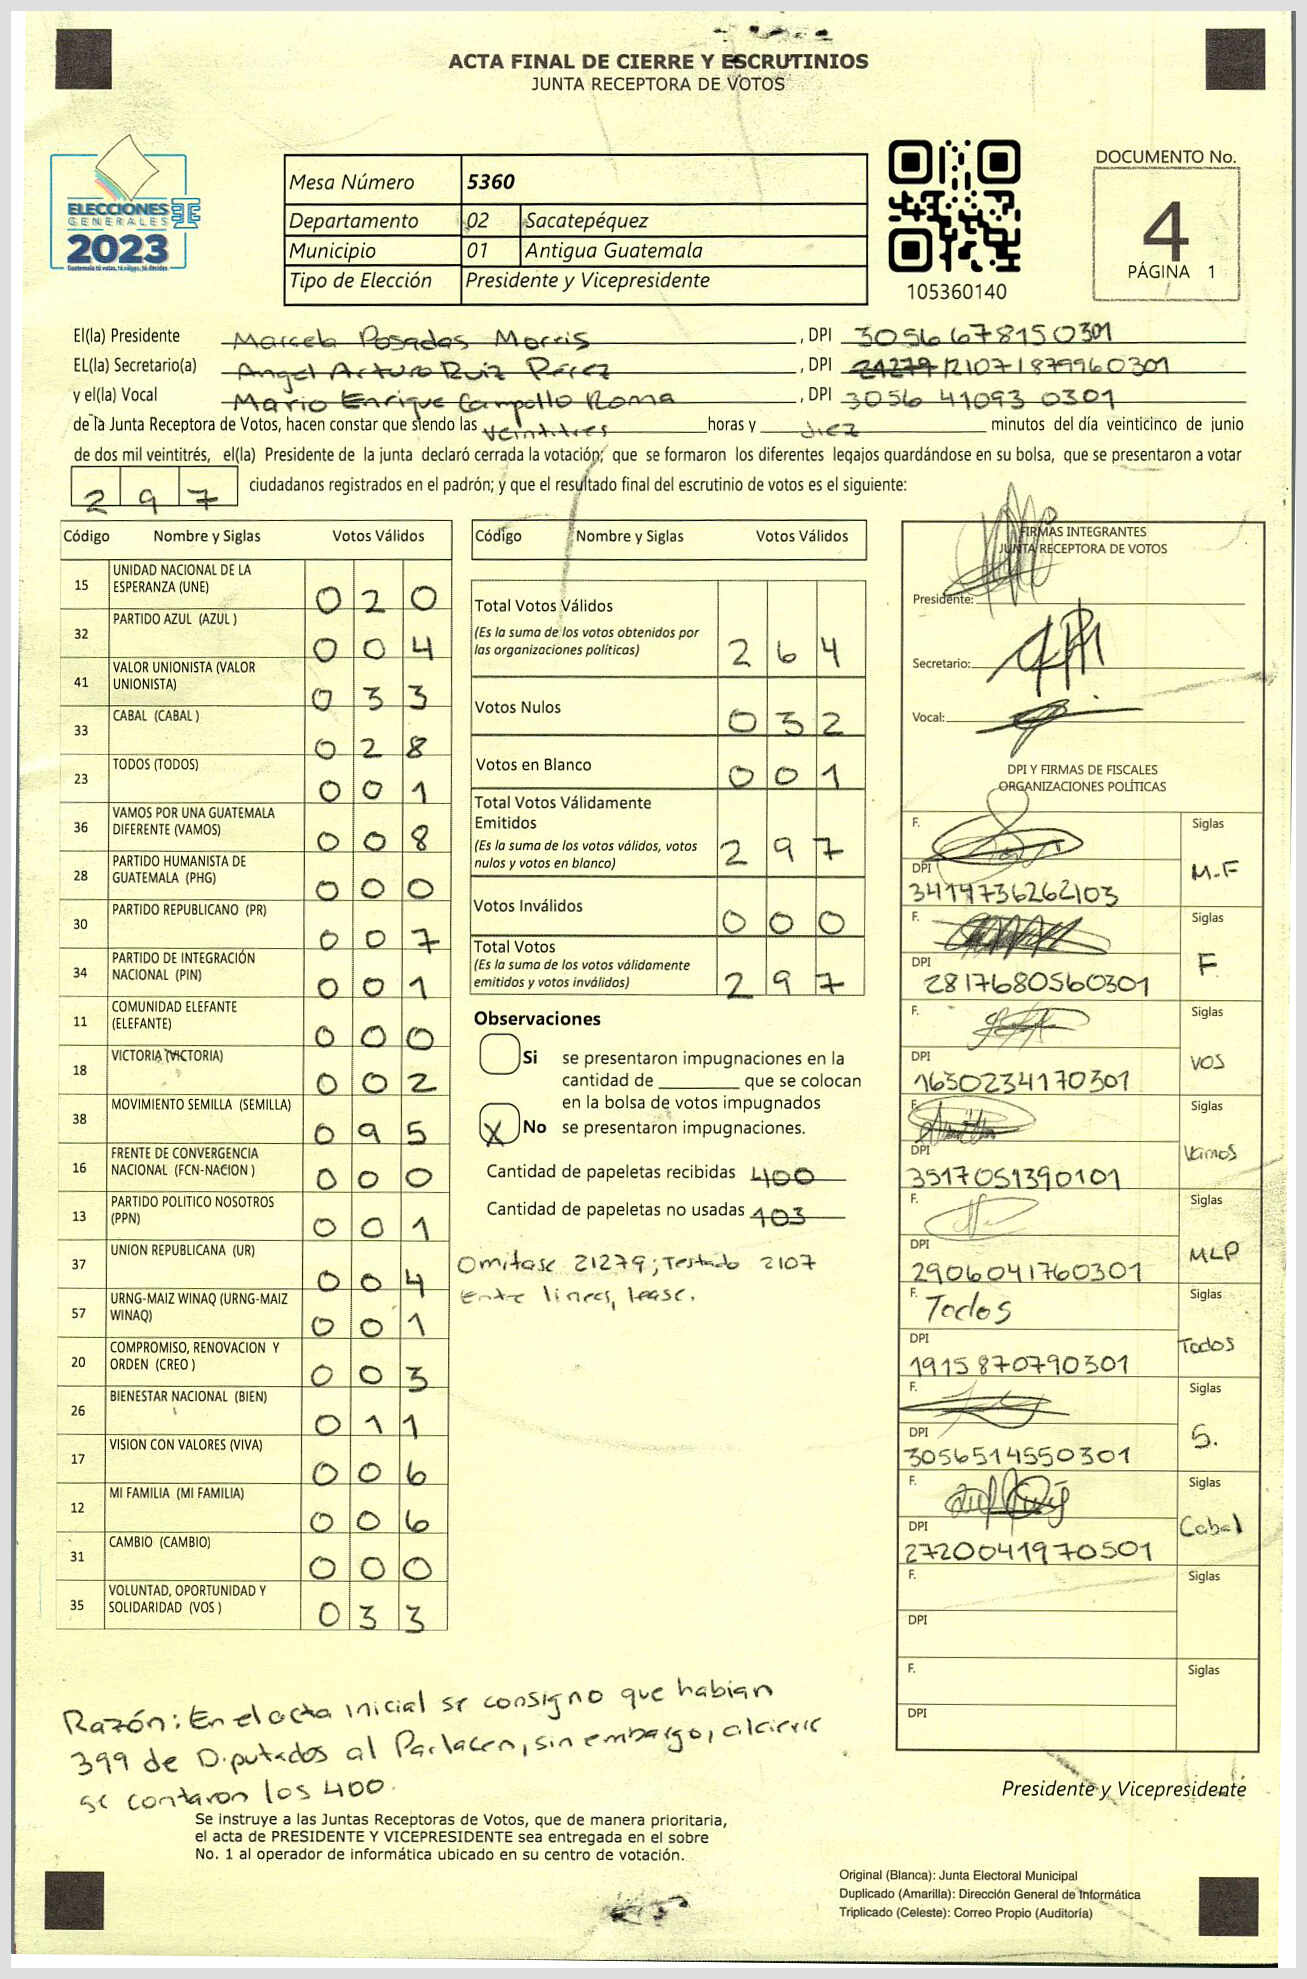 ACTA FINAL DE CIERRE Y ESCRUTINIOS
JUNTA RECEPTORA DE VOTOS
ELECCIONES
GENERALES
2023
Guatemala tú votas, tú eliges, tú decides
Mesa Número 5360
Departamento 02 Sacatepéquez
Municipio 01 Antigua Guatemala
Tipo de Elección Presidente y Vicepresidente
105360140
DOCUMENTO No.
4
PÁGINA 1
El(la) Presidente Marcela Posadas Morris , DPI 3056678150301
EL(la) Secretario(a) Angel Arturo Ruiz Pérez , DPI 21279 2107187996 0301
y el(la) Vocal Mario Enrique Campollo Roma , DPI 3056 41093 0301
de la Junta Receptora de Votos, hacen constar que siendo las veintitres horas y diez minutos del día veinticinco de junio
de dos mil veintitrés, el(la) Presidente de la junta declaró cerrada la votación; que se formaron los diferentes legajos guardándose en su bolsa, que se presentaron a votar
297 ciudadanos registrados en el padrón; y que el resultado final del escrutinio de votos es el siguiente:
Código Nombre y Siglas Votos Válidos
15 UNIDAD NACIONAL DE LA ESPERANZA (UNE) 020
32 PARTIDO AZUL (AZUL ) 004
41 VALOR UNIONISTA (VALOR UNIONISTA) 033
33 CABAL (CABAL ) 028
23 TODOS (TODOS) 001
36 VAMOS POR UNA GUATEMALA DIFERENTE (VAMOS) 008
28 PARTIDO HUMANISTA DE GUATEMALA (PHG) 000
30 PARTIDO REPUBLICANO (PR) 007
34 PARTIDO DE INTEGRACIÓN NACIONAL (PIN) 001
11 COMUNIDAD ELEFANTE (ELEFANTE) 000
18 VICTORIA (VICTORIA) 002
38 MOVIMIENTO SEMILLA (SEMILLA) 095
16 FRENTE DE CONVERGENCIA NACIONAL (FCN-NACION ) 000
13 PARTIDO POLITICO NOSOTROS (PPN) 001
37 UNION REPUBLICANA (UR) 004
57 URNG-MAIZ WINAQ (URNG-MAIZ WINAQ) 001
20 COMPROMISO, RENOVACION Y ORDEN (CREO ) 003
26 BIENESTAR NACIONAL (BIEN) 011
17 VISION CON VALORES (VIVA) 006
12 MI FAMILIA (MI FAMILIA) 006
31 CAMBIO (CAMBIO) 000
35 VOLUNTAD, OPORTUNIDAD Y SOLIDARIDAD (VOS ) 033
Código Nombre y Siglas Votos Válidos
Total Votos Válidos
(Es la suma de los votos obtenidos por
las organizaciones políticas) 264
Votos Nulos 032
Votos en Blanco 001
Total Votos Válidamente
Emitidos
(Es la suma de los votos válidos, votos
nulos y votos en blanco) 297
Votos Inválidos 000
Total Votos
(Es la suma de los votos válidamente
emitidos y votos inválidos) 297
Observaciones
Si se presentaron impugnaciones en la
cantidad de ________ que se colocan
en la bolsa de votos impugnados
X No se presentaron impugnaciones.
Cantidad de papeletas recibidas 400
Cantidad de papeletas no usadas 103
Omitase 21279; Testado 2107
Entre lineas, lease.
FIRMAS INTEGRANTES
JUNTA RECEPTORA DE VOTOS
Presidente:
Secretario:
Vocal:
DPI Y FIRMAS DE FISCALES
ORGANIZACIONES POLÍTICAS
F. Siglas
DPI M-F
3414736262103
F. Siglas
DPI F
2817680560301
F. Siglas
DPI VOS
1630234170301
F. Siglas
DPI Vamos
3517051390101
F. Siglas
DPI MLP
2906041760301
F. Todos Siglas
DPI Todos
1915870790301
F. Siglas
DPI S.
3056514550301
F. Siglas
DPI Cabal
2720041970501
F. Siglas
DPI
F. Siglas
DPI
Razón: En el acta inicial se consigno que habian
399 de Diputados al Parlacen, sin embargo, al cierre
se contaron los 400.
Presidente y Vicepresidente
Se instruye a las Juntas Receptoras de Votos, que de manera prioritaria,
el acta de PRESIDENTE Y VICEPRESIDENTE sea entregada en el sobre
No. 1 al operador de informática ubicado en su centro de votación.
Original (Blanca): Junta Electoral Municipal
Duplicado (Amarilla): Dirección General de Informática
Triplicado (Celeste): Correo Propio (Auditoría)